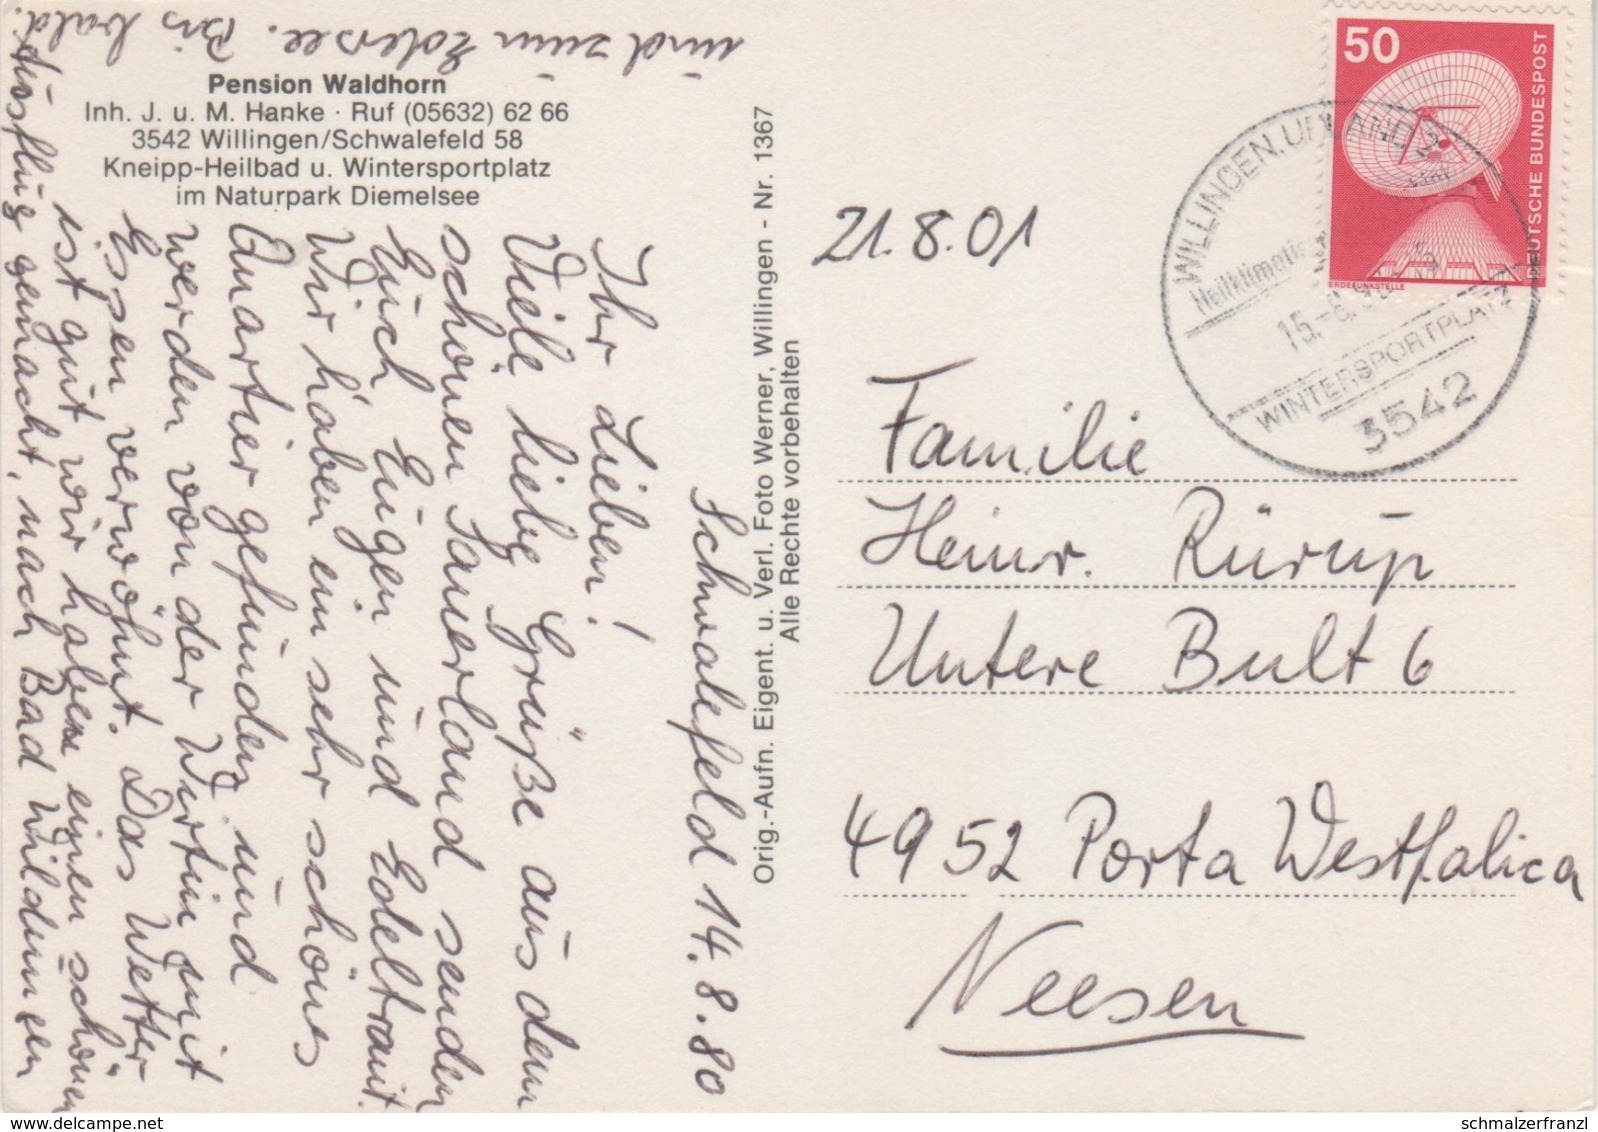 Pension Waldhorn
Inh. J. u. M. Hanke · Ruf (05632) 62 66
3542 Willingen/Schwalefeld 58
Kneipp-Heilbad u. Wintersportplatz
im Naturpark Diemelsee
Schwalefeld 14.8.80
Ihr Lieben!
Viele liebe Grüße aus dem
schönen Sauerland senden
Euch Eugen und Edeltraut.
Wir haben ein sehr schönes
Quartier gefunden und
werden von der Wirtin mit
Essen verwöhnt. Das Wetter
ist gut wir haben einen schönen
Ausflug gemacht, nach Bad Wildungen
und zum Edersee. Bis bald.
Orig.-Aufn. Eigent. u. Verl. Foto Werner, Willingen - Nr. 1367
Alle Rechte vorbehalten
50
DEUTSCHE BUNDESPOST
ERDEFUNKSTELLE
WILLINGEN, UPLAND
Heilklimatis
15.-8.80
WINTERSPORTPLATZ
3542
21.8.01
Familie
Heinr. Rürup
Untere Bult 6
4952 Porta Westfalica
Neesen
www.delcampe.net
schmalzerfranzl